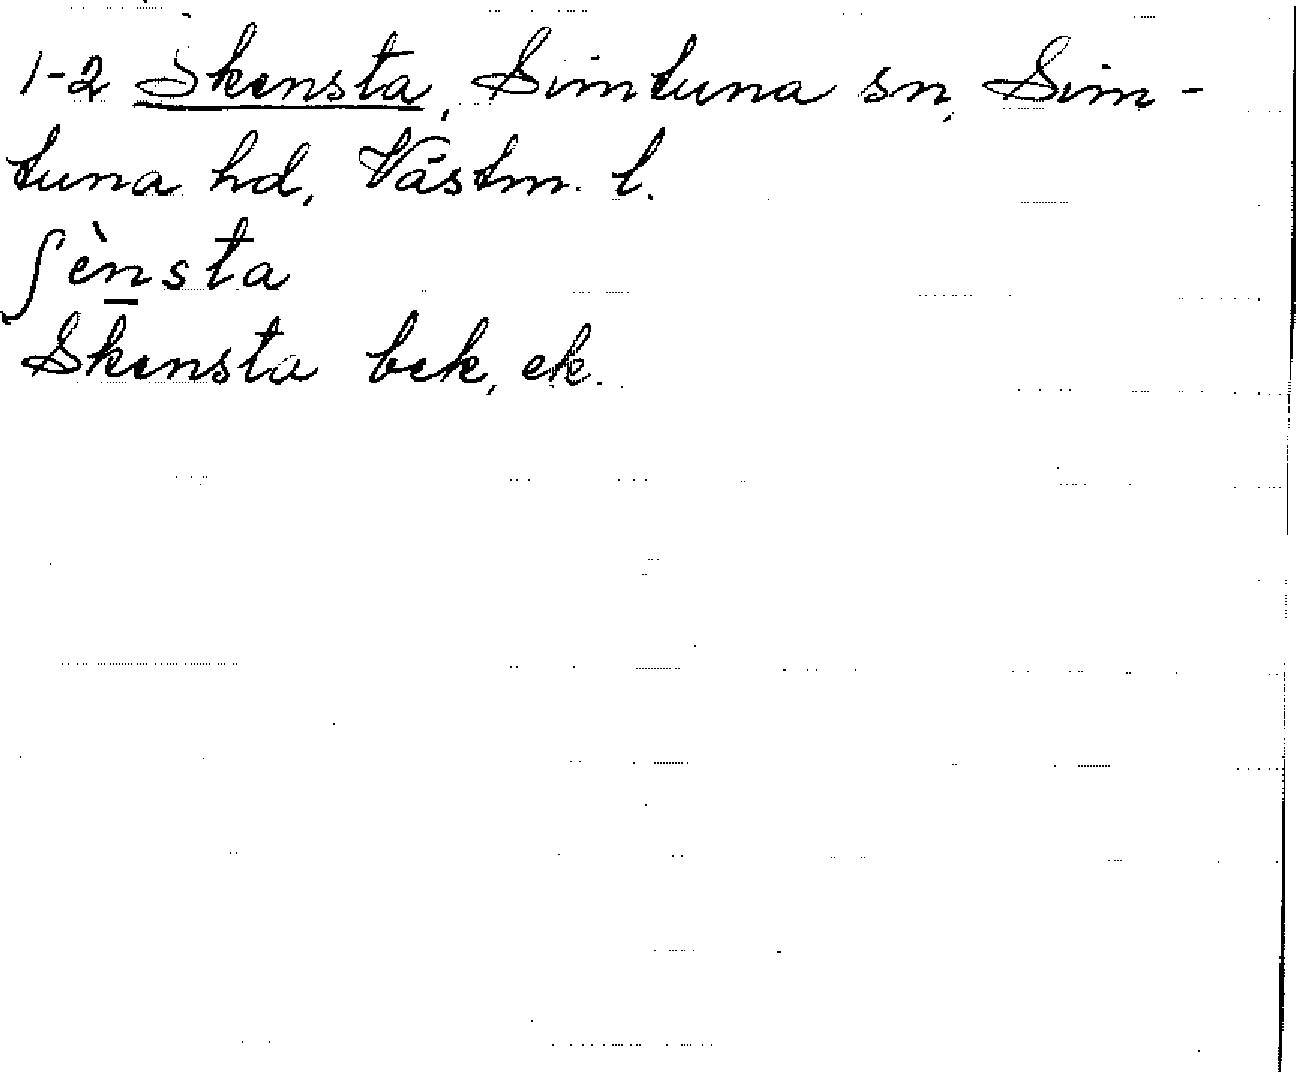 1-2 Skensta, Simtuna sn, Sim-
tuna hd, Västm. l.
ʃèn̲sta
Skensta bek, ek.